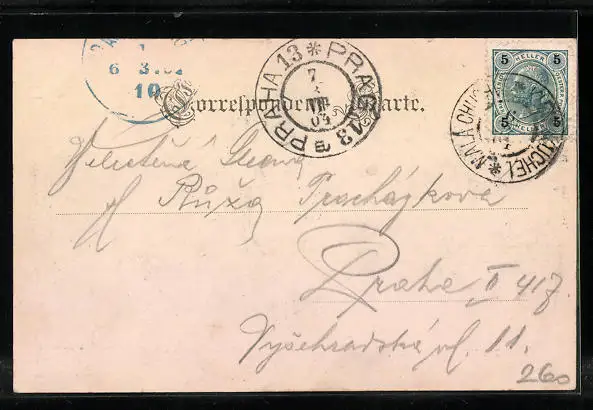 Correspondenz-Karte.
PRAHA 13 * PRAHA 13
7
VIII
04
5 HELLER 5
5 5
MALÁ CHUCHLE * KUCHEL
6 3
10
Velectěná slečna
Růža Procházkova
Praha II 417
Vyšehradská ul. 11.
260